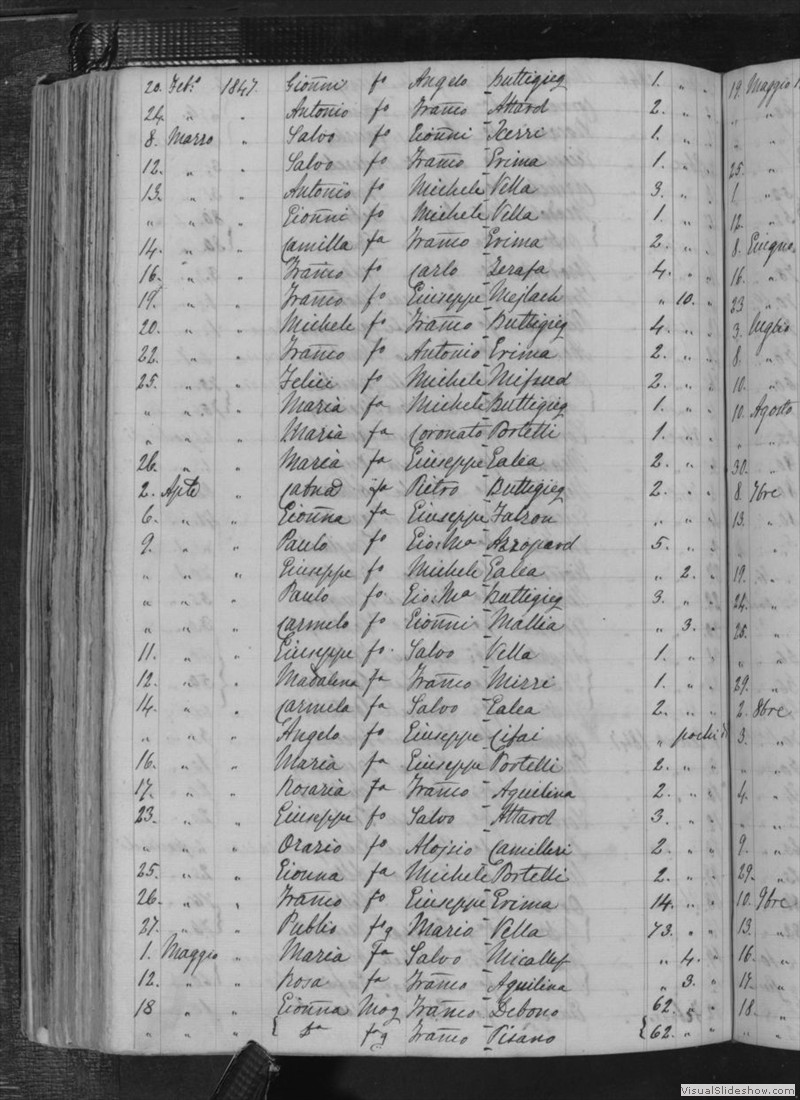 20. Feb.o 1847. Gionni fo Angelo Buttigieg 1. " "
24. " " Antonio fo Franco Attard 2. " "
8. Marzo " Salvo fo Gionni Xerri 1. " "
12. " " Salvo fo Franco Grima 1. " "
13. " " Antonio fo Michele Vella 3. " "
" " " Gionni fo Michele Vella 1. " "
14. " " Camilla fa Franco Grima 2. " "
16. " " Franco fo Carlo Zerafa 4. " "
19. " " Franco fo Giuseppe Mejlach " 10. "
20. " " Michele fo Franco Buttigieg 4. " "
22. " " Franco fo Antonio Grima 2. " "
25. " " Felici fo Michele Mifsud 2. " "
" " " Maria fa Michele Buttigieg 1. " "
" " " Maria fa Coronato Portelli 1. " "
26. " " Maria fa Giuseppe Galea 2. " "
2. Aple " fa Pietro Buttigieg 2. " "
6. " " Gionna fa Giuseppe Falzon " " "
9. " " Paulo fo Gio:Ma Azzopard 5. " "
" " " Giuseppe fo Michele Galea " 2. "
" " " Paulo fo Gio:Ma Buttigieg 3. " "
" " " Carmelo fo Gionni Mallia " 3. "
11. " " Giuseppe fo Salvo Vella 1. " "
12. " " Madalena fa Franco Mizzi 1. " "
14. " " Carmela fa Salvo Galea 2. " "
" " " Angelo fo Giuseppe Cifai " pochi di
16. " " Maria fa Giuseppe Portelli 2. " "
17. " " Rosaria fa Franco Aquilina 2. " "
23. " " Giuseppe fo Salvo Attard 3. " "
" " " Orazio fo Alojsio Camilleri 2. " "
25. " " Gionna fa Michele Portelli 2. " "
26. " " Franco fo Giuseppe Grima 14. " "
27. " " Publio fog Mario Vella 73. " "
1. Maggio " Maria fa Salvo Micallef " 4. "
12. " " Rosa fa Franco Aquilina " 3. "
18 " " Gionna Mog Franco Debono 62. "
" " " { Da fg Franco Pisano {62. " "
19. Maggio 1
" "
" "
25. "
1 "
12. "
8. Giugno
16. "
23 "
3. Luglio
8. "
10. "
10. Agosto
" "
30. "
8 7bre
13. "
" "
19. "
24. "
25. "
" "
29. "
2. 8bre
3. "
" "
4. "
" "
9. "
29. "
10. 9bre
13. "
16. "
17. "
18. "
" "
VisualSlideshow.com